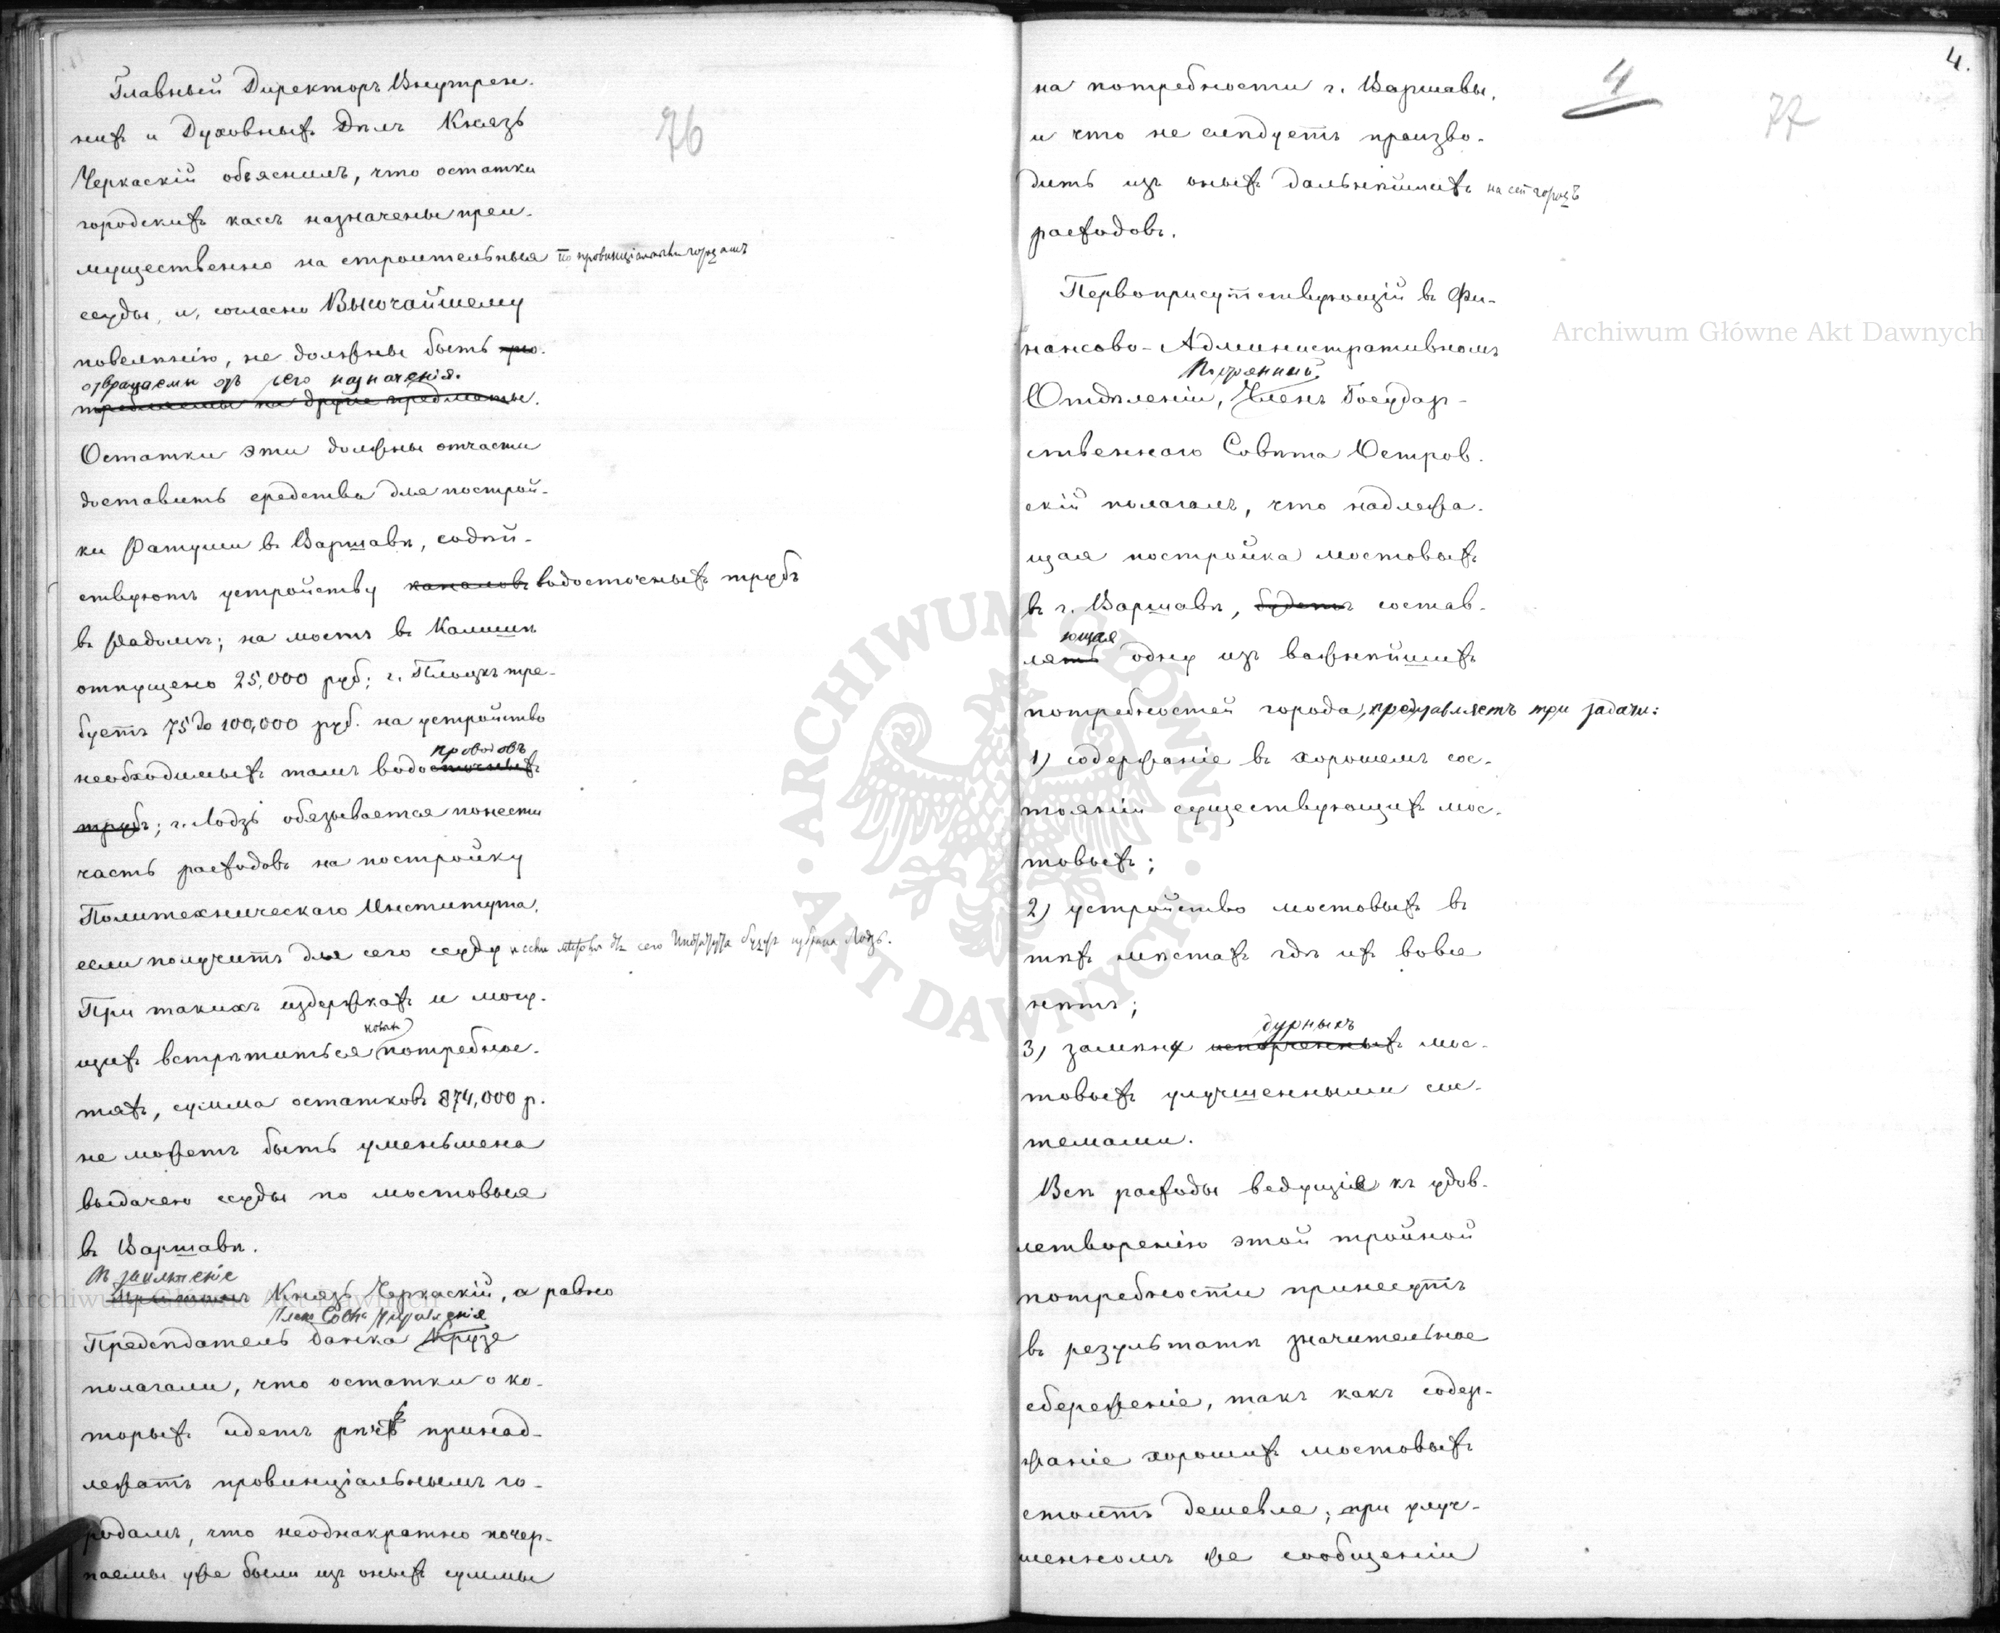 Главный Директоръ Внутрен-
нихъ и Духовныхъ Дѣлъ Князь
Черкаскій объяснилъ, что остатки
городскихъ кассъ назначены преи-
мущественно на строительныя по провинціальнымъ городамъ
ссуды, и, согласно Высочайшему
повелѣнію, не должны быть
отвращаемы отъ сего назначенія.
Остатки эти должны отчасти
доставить средства для построй-
ки ратуши въ Варшавѣ, содѣй-
ствуютъ устройству каналовъ водосточныхъ трубъ
въ Радомѣ; на мостъ въ Калишѣ
отпущено 25,000 руб; г. Плоцкъ тре-
буетъ 75 до 100,000 руб. на устройство
проводовъ
необходимыхъ тамъ водосточныхъ
трубъ; г. Лодзь обязывается понести
часть расходовъ на постройку
Политехническаго Института,
если получитъ для сего ссуду и если для сего Института будетъ избрана Лодзь.
При такихъ издержкахъ и могу-
новыя
щихъ встрѣтиться потребнос-
тяхъ, сумма остатковъ 874,000 р.
не можетъ быть уменьшена
выдачею ссуды по мостовыя
въ Варшавѣ.
Въ заключеніе
При томъ Князь Черкаскій, а равно
Членъ Совѣта Управленія
Предсѣдатель банка Крузе
полагали, что остатки о ко-
торыхъ идетъ рѣчь принад-
лежатъ провинціальнымъ го-
родамъ, что неоднакратно почер-
паемы уже были изъ оныхъ суммы
76
4.
4
77
на потребности г. Варшавы,
и что не слѣдуетъ произво-
дить изъ оныхъ дальнѣйшихъ на сей городъ
расходовъ.
Первоприсутствующій въ Фи-
нансово-Административномъ
Отдѣленіи, Членъ Государ-
ственнаго Совѣта Остров-
скій полагалъ, что надлежа-
щая постройка мостовыхъ
въ г. Варшавѣ, будетъ состав-
ющая
лять одну изъ важнѣйшихъ
потребностей города, представляетъ три задачи:
1) содержаніе въ хорошемъ сос-
тояніи существующихъ мос-
товыхъ;
2) устройство мостовыхъ въ
тѣхъ мѣстахъ гдѣ ихъ вовсе
нѣтъ;
дурныхъ
3) замѣну испорченныхъ мос-
товыхъ улучшенными сис-
темами.
Всѣ расходы ведущіе къ удов-
летворенію этой тройной
потребности принесутъ
въ результатѣ значительное
сбереженіе, такъ какъ содер-
жаніе хорошихъ мостовыхъ
стоитъ дешевле; при улуч-
шенномъ же сообщеніи
Archiwum Główne Akt Dawnych
Archiwum Główne Akt Dawnych
ARCHIWUM GŁÓWNE · AKT DAWNYCH ·